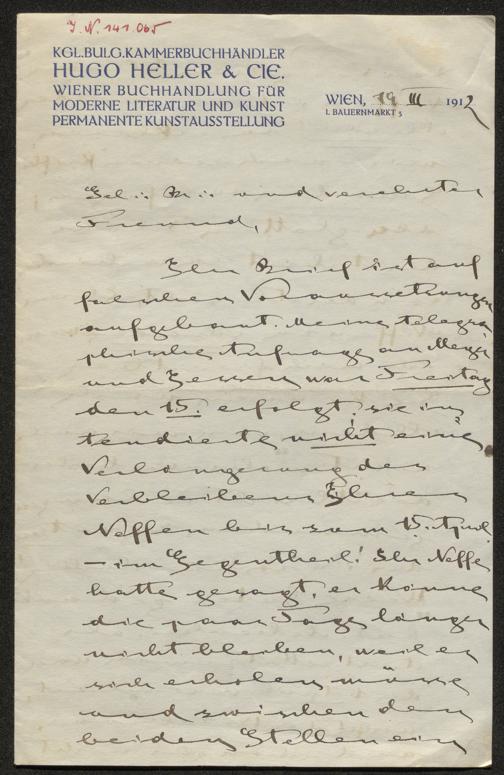 J. N. 141.065
KGL. BULG. KAMMERBUCHHÄNDLER
HUGO HELLER & CIE.
WIENER BUCHHANDLUNG FÜR
MODERNE LITERATUR UND KUNST
PERMANENTE KUNSTAUSSTELLUNG
WIEN, 19 III 1912
I. BAUERNMARKT 3
und verehrter
Freund,
Ihr Brief ist auf
falschen Voraussetzungen
aufgebaut. Meine telegra
phische Anfrage an
und war Freitag
den 15. erfolgt, sie in
tendierte nicht eine
Verlängerung des
Verbleibens Ihres
Neffen bis zum 15. April
– im Gegentheil! Ihr Neffe
hatte gesagt, er könne
die paar Tage länger
nicht bleiben, weil er
sich erholen müsse
und zwischen den
beiden Stellen ein